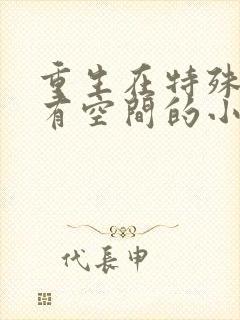 重生在特殊
有空間的小
代長申